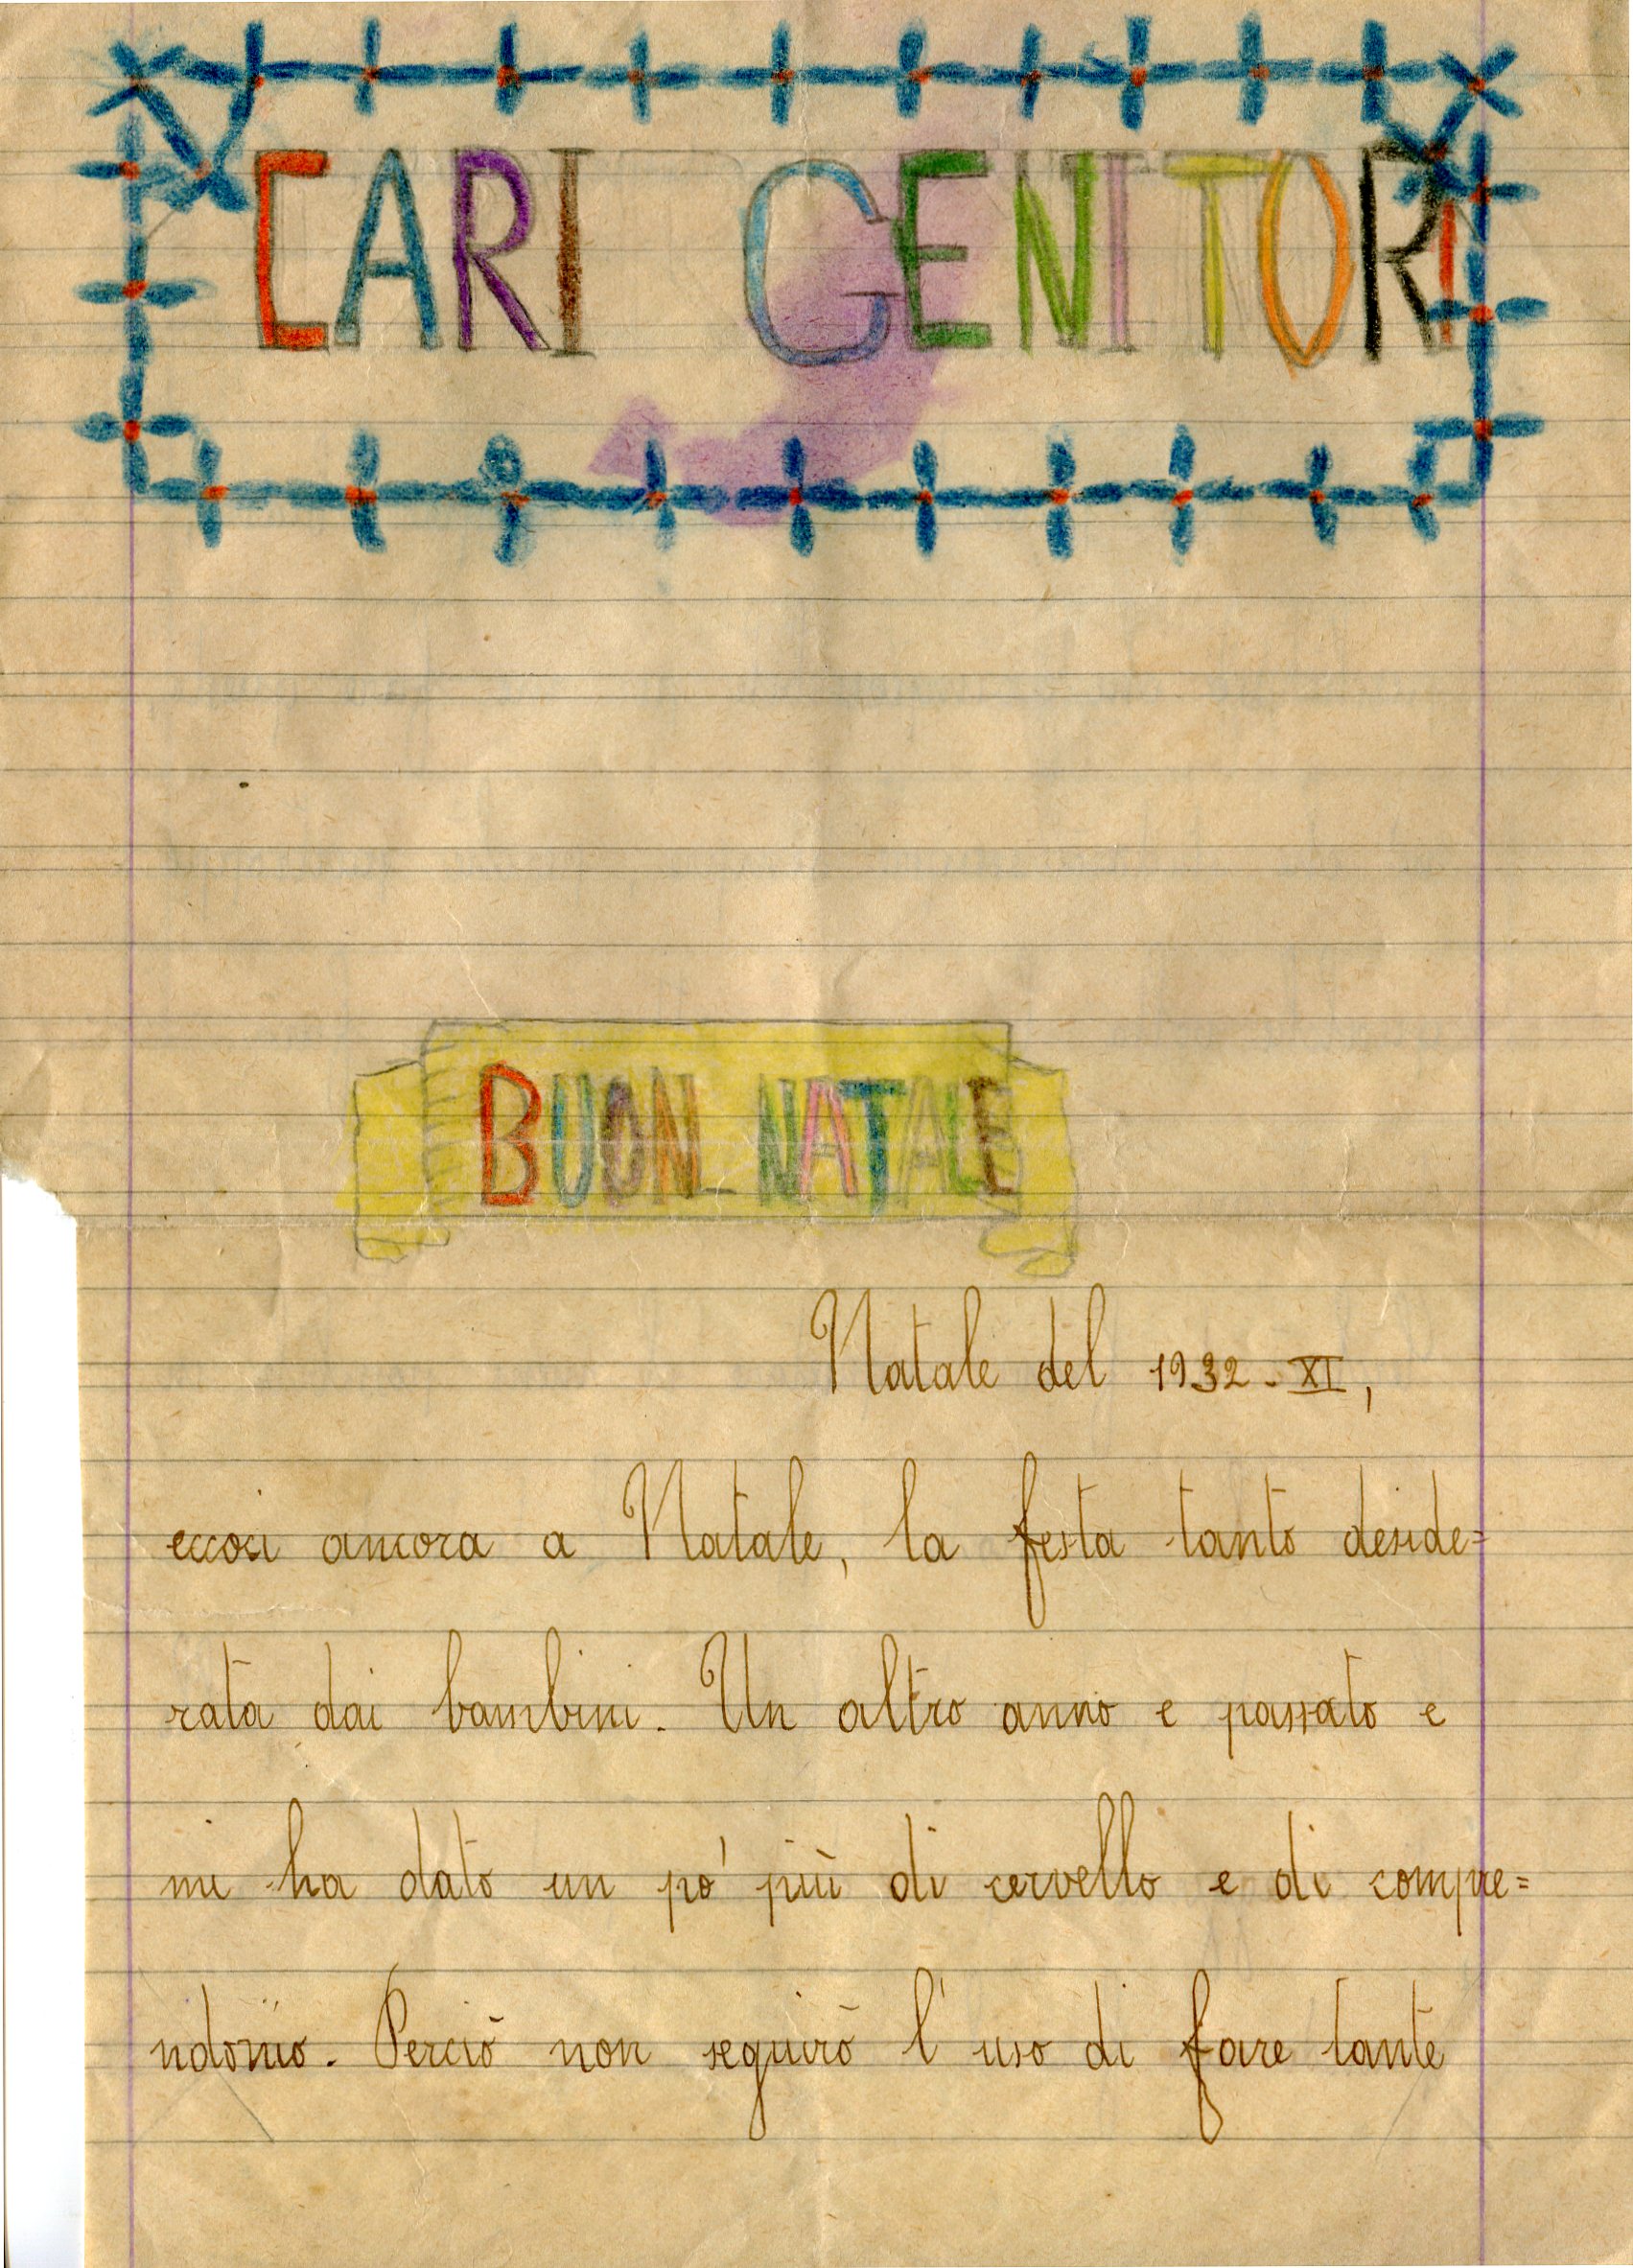 CARI GENITORI
BUON NATALE
Natale del 1932-XI,
eccoci ancora a Natale, la festa tanto deside=
rata dai bambini. Un altro anno e passato e
mi ha dato un pò più di cervello e di compre=
ndonio. Perciò non seguirò l'uso di fare tante